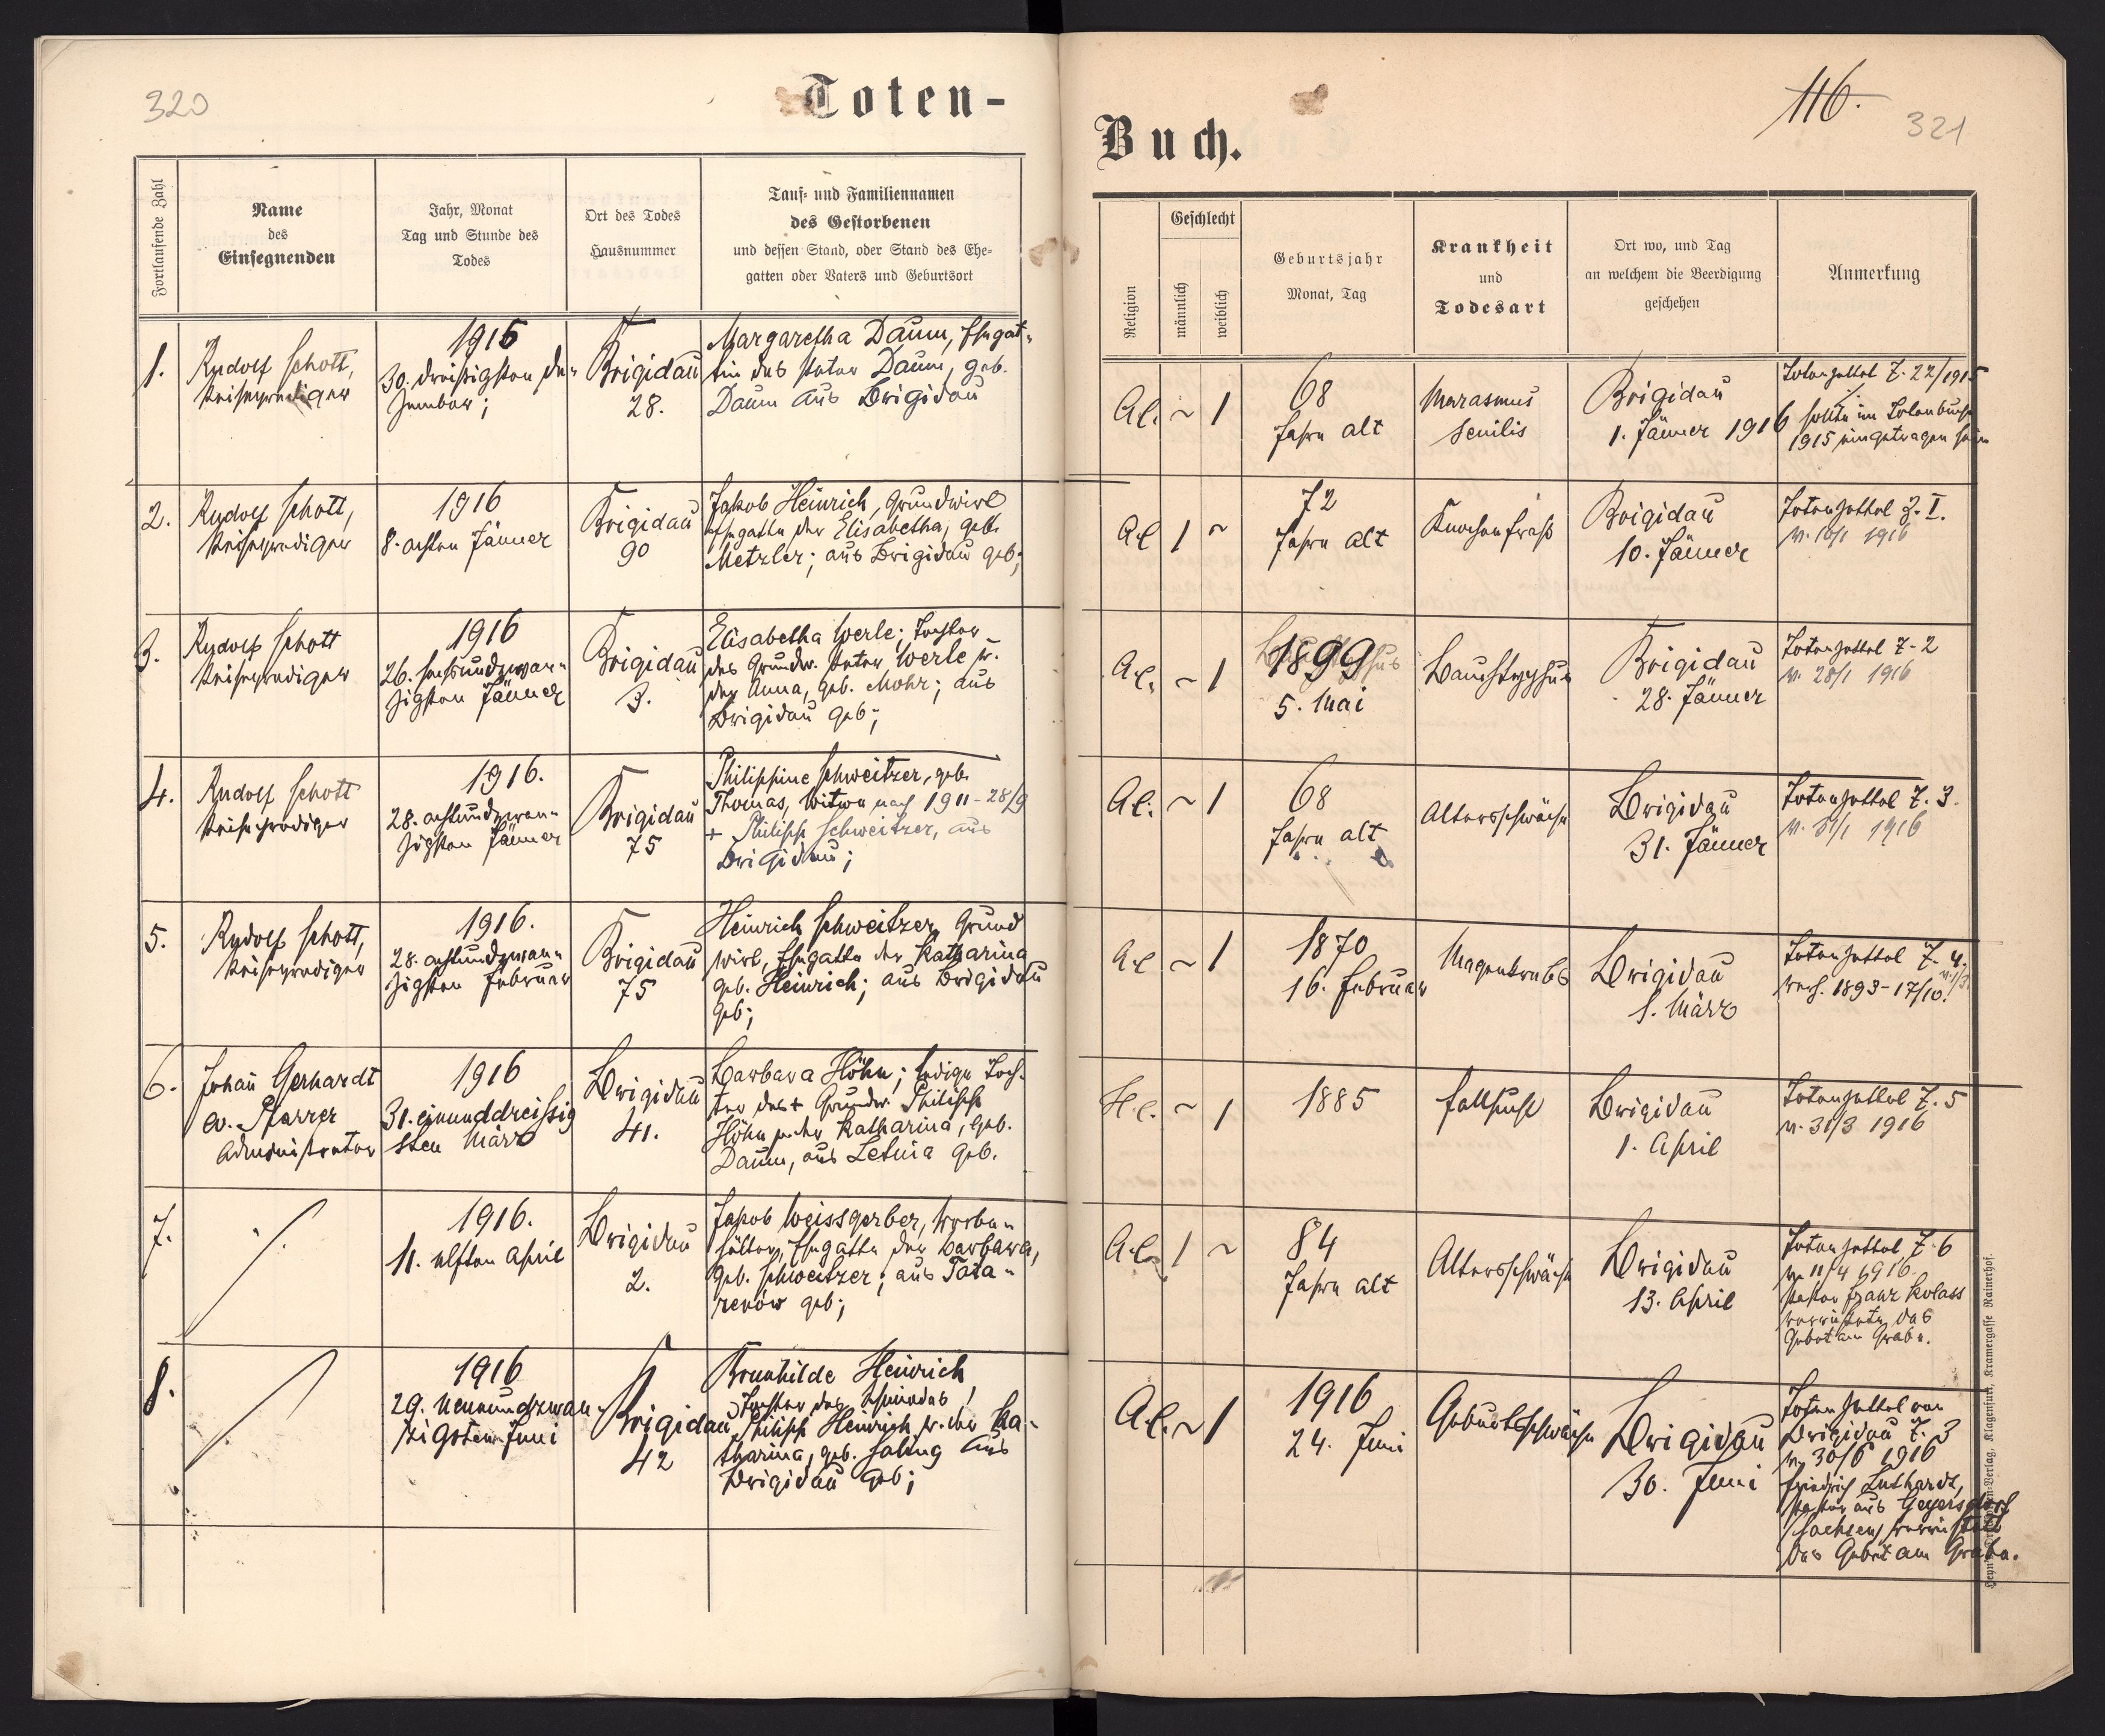 320
Toten-
Fortlaufende Zahl
Name
des
Einsegnenden
Jahr, Monat
Tag und Stunde des
Todes
Ort des Todes
Hausnummer
Tauf- und Familiennamen
des Gestorbenen
und dessen Stand, oder Stand des Ehe-
gatten oder Vaters und Geburtsort
1.
Rudolf Schott,
Reiseprediger
1915
30. dreißigsten De-
zember;
Brigidau
28.
Margaretha Daum, Ehegat-
tin des Peter Daum, geb.
Daum aus Brigidau
2.
Rudolf Schott,
Reiseprediger
1916
8. achten Jänner
Brigidau
90
Jakob Heinrich, Grundwirt
Ehegatte der Elisabetha, geb.
Metzler; aus Brigidau geb;
3.
Rudolf Schott
Reiseprediger
1916
26. sechsundzwan-
zigsten Jänner
Brigidau
3.
Elisabetha Werle; Tochter
des Grundw. Peter Werle u.
der Anna, geb. Mohr; aus
Brigidau geb;
4.
Rudolf Schott
Reiseprediger
1916.
28. achtundzwan-
zigsten Jänner
Brigidau
75
Philippine Schweitzer, geb.
Thomas, Witwe nach 1911-28/9
+ Philipp Schweitzer, aus
Brigidau;
5.
Rudolf Schott,
Reiseprediger
1916.
28. achtundzwan-
zigsten Februar
Brigidau
75
Heinrich Schweitzer, Grund
wirt, Ehegatte der Katharina
geb. Heinrich; aus Brigidau
geb;
6.
Johañ Gerhardt
ev. Pfarrer
Administrator
1916
31. einunddreissig
sten März
Brigidau
41.
Barbara Höhn; ledige Toch-
ter des + Grundw. Philipp
Höhn u. der Katharina, geb.
Daum, aus Letnia geb.
7.
1916.
11. elften April
Brigidau
2.
Jakob Weissgerber, Vorbe-
hälter, Ehegatte der Barbara,
geb. Schweitzer; aus Tata-
renów geb;
8.
1916
29. neunundzwan-
zigsten Juni
Brigidau
42
Brunhilde Heinrich,
Tochter des Schmiedes
Philipp Heinrich u. der Ka-
tharina, geb. Saling aus
Brigidau geb;
Buch.
116.
321
Religion
Geschlecht
männlich
weiblich
Geburtsjahr
Monat, Tag
Krankheit
und
Todesart
Ort wo, und Tag
an welchem die Beerdigung
geschehen
Anmerkung
A.C. ~ 1
68
Jahre alt
Marasmus
senilis
Brigidau
1. Jänner 1916
Totenzettel Z. 22/1915
sollte im Totenbuch
1915 eingetragen sein
A.C. 1 ~
72
Jahre alt
Knochenfraß
Brigidau
10. Jänner
Totenzettel Z. I.
v. 10/1 1916
A.C. ~ 1
1899
5. Mai
Bauchtyphus
Brigidau
28. Jänner
Totenzettel Z. 2
v. 28/1 1916
A.C. ~ 1
68
Jahre alt
Altersschwäche
Brigidau
31. Jänner
Totenzettel Z. 3.
v. 31/1 1916
A.C. ~ 1
1870
16. Februar
Magenkrebs
Brigidau
1. März
Totenzettel Z. 4.
v. 1/3.
verh. 1893-17/10.
H.C. ~ 1
1885
Fallsucht
Brigidau
1. April
Totenzettel Z. 5
v. 31/3 1916
A.C. 1 ~
84
Jahre alt
Altersschwäche
Brigidau
13. April
Totenzettel Z. 6
v. 11/4 1916.
Pastor Franz Kolass
verrichtete das
Gebet am Grabe.
A.C. ~ 1
1916
24. Juni
Geburtsschwäche
Brigidau
30. Juni
Totenzettel von
Brigidau Z. 3
v. 30/6 1916
Friedrich Luthardt,
Pastor aus Geyersdorf
(Sachsen) verrichtete
das Gebet am Grabe.
Verlag, Klagenfurt, Kramergasse Rainerhof.